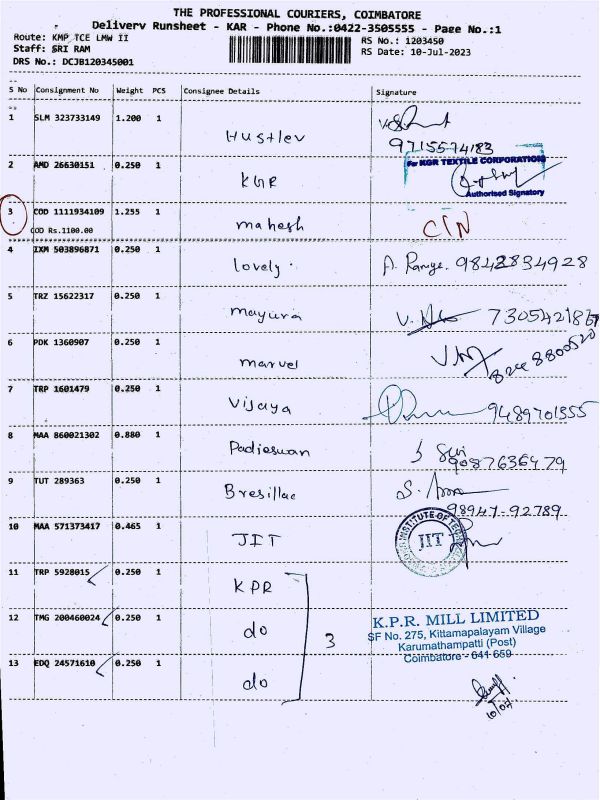 THE PROFESSIONAL COURIERS, COIMBATORE
Delivery Runsheet - KAR - Phone No.:0422-3505555 - Page No.:1
Route: KMP TCE LMW II
RS No.: 1203450
Staff: SRI RAM
RS Date: 10-Jul-2023
DRS No.: DCJB120345001
S No Consignment No Weight PCS Consignee Details Signature
1 SLM 323733149 1.200 1
Hustlev
9715574183
2 AMD 26630151 0.250 1
For KGR TEXTILE CORPORATION
KGR
Authorised Signatory
3 COD 1111934109 1.255 1
mahesh CIN
COD Rs.1100.00
4 IXM 503896871 0.250 1
lovely. 9842834928
5 TRZ 15622317 0.250 1
mayura 7305421867
6 PDK 1360907 0.250 1
marvel
7 TRP 1601479 0.250 1
Vijaya 9489701355
8 MAA 860021302 0.880 1
Padieswan
9087636479
9 TUT 289363 0.250 1
Bresillae
98947-92789
10 MAA 571373417 0.465 1
JIT JIT
11 TRP 5928015 0.250 1
KPR
12 TMG 200460024 0.250 1
do 3
K.P.R. MILL LIMITED
SF No. 275, Kittamapalayam Village
Karumathampatti (Post)
Coimbatore - 641 659
13 EDQ 24571610 0.250 1
do
10/07